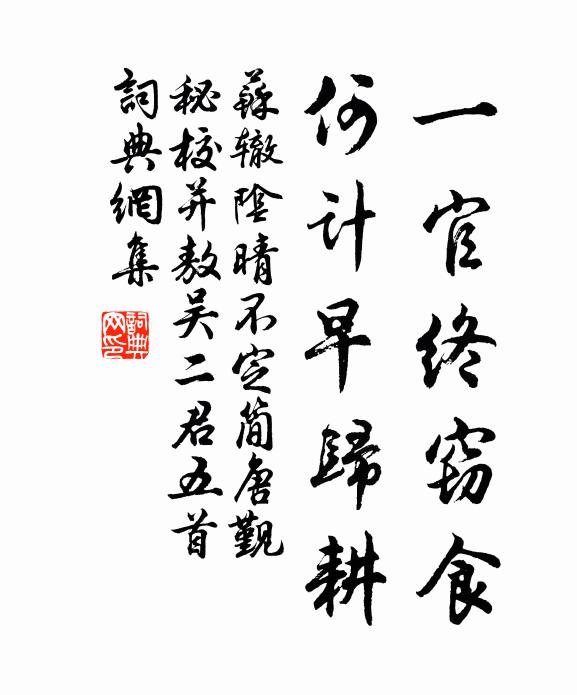 一官終竊食
何計早歸耕
蘇轍陰晴不定簡唐觀
秘校并敖吴二君五首
詞典網集
詞典网印